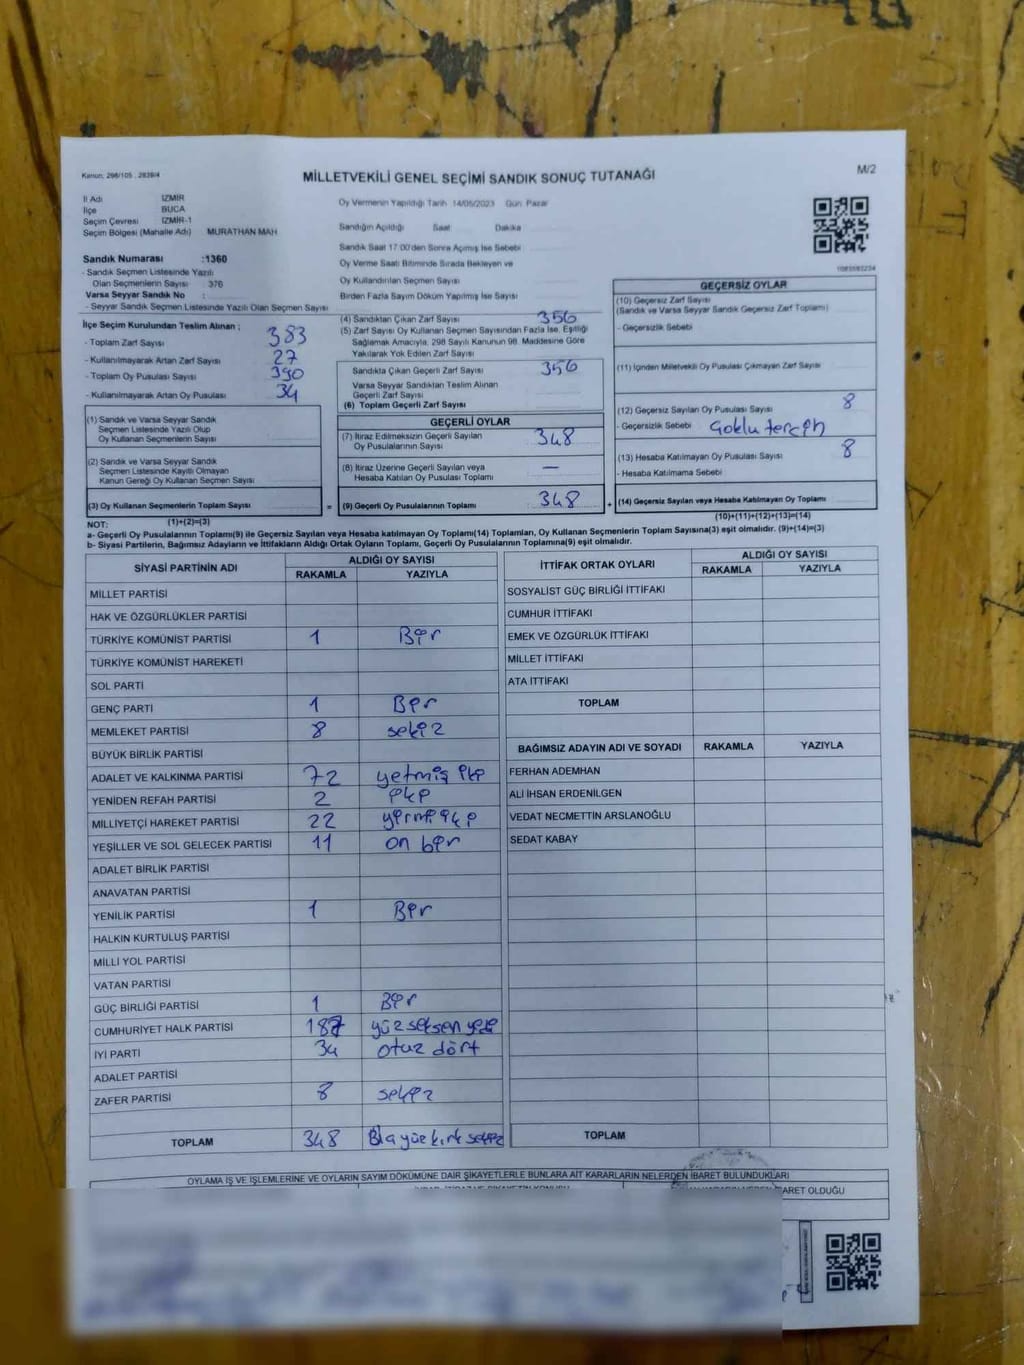 Kanun: 298/105 , 2839/4
MİLLETVEKİLİ GENEL SEÇİMİ SANDIK SONUÇ TUTANAĞI
M/2
İl Adı İZMİR
İlçe BUCA
Seçim Çevresi İZMİR-1
Seçim Bölgesi (Mahalle Adı) MURATHAN MAH
Sandık Numarası :1360
- Sandık Seçmen Listesinde Yazılı
Olan Seçmenlerin Sayısı 376
Varsa Seyyar Sandık No :
- Seyyar Sandık Seçmen Listesinde Yazılı Olan Seçmen Sayısı
İlçe Seçim Kurulundan Teslim Alınan ;
- Toplam Zarf Sayısı 383
- Kullanılmayarak Artan Zarf Sayısı 27
- Toplam Oy Pusulası Sayısı 390
- Kullanılmayarak Artan Oy Pusulası 34
(1) Sandık ve Varsa Seyyar Sandık
Seçmen Listesinde Yazılı Olup
Oy Kullanan Seçmenlerin Sayısı
(2) Sandık ve Varsa Seyyar Sandık
Seçmen Listesinde Kayıtlı Olmayan
Kanun Gereği Oy Kullanan Seçmen Sayısı
(3) Oy Kullanan Seçmenlerin Toplam Sayısı
(1)+(2)=(3)
Oy Vermenin Yapıldığı Tarih 14/05/2023 Gün Pazar
Sandığın Açıldığı Saat Dakika
Sandık Saat 17:00'den Sonra Açılmış İse Sebebi
Oy Verme Saati Bitiminde Sırada Bekleyen ve
Oy Kullandırılan Seçmen Sayısı
Birden Fazla Sayım Döküm Yapılmış İse Sayısı
(4) Sandıktan Çıkan Zarf Sayısı 356
(5) Zarf Sayısı Oy Kullanan Seçmen Sayısından Fazla İse, Eşitliği
Sağlamak Amacıyla, 298 Sayılı Kanunun 98. Maddesine Göre
Yakılarak Yok Edilen Zarf Sayısı
Sandıkta Çıkan Geçerli Zarf Sayısı 356
Varsa Seyyar Sandıktan Teslim Alınan
Geçerli Zarf Sayısı
(6) Toplam Geçerli Zarf Sayısı
GEÇERLİ OYLAR
(7) İtiraz Edilmeksizin Geçerli Sayılan
Oy Pusulalarının Sayısı 348
(8) İtiraz Üzerine Geçerli Sayılan veya
Hesaba Katılan Oy Pusulası Toplamı —
= (9) Geçerli Oy Pusulalarının Toplamı 348
1085583234
GEÇERSİZ OYLAR
(10) Geçersiz Zarf Sayısı
(Sandık ve Varsa Seyyar Sandık Geçersiz Zarf Toplamı)
- Geçersizlik Sebebi
(11) İçinden Milletvekili Oy Pusulası Çıkmayan Zarf Sayısı
(12) Geçersiz Sayılan Oy Pusulası Sayısı 8
- Geçersizlik Sebebi Çoklu tercih
(13) Hesaba Katılmayan Oy Pusulası Sayısı 8
- Hesaba Katılmama Sebebi
+ (14) Geçersiz Sayılan veya Hesaba Katılmayan Oy Toplamı
(10)+(11)+(12)+(13)=(14)
NOT:
a- Geçerli Oy Pusulalarının Toplamı(9) ile Geçersiz Sayılan veya Hesaba katılmayan Oy Toplamı(14) Toplamları, Oy Kullanan Seçmenlerin Toplam Sayısına(3) eşit olmalıdır. (9)+(14)=(3)
b- Siyasi Partilerin, Bağımsız Adayların ve İttifakların Aldığı Ortak Oyların Toplamı, Geçerli Oy Pusulalarının Toplamına(9) eşit olmalıdır.
SİYASİ PARTİNİN ADI ALDIĞI OY SAYISI
RAKAMLA YAZIYLA
MİLLET PARTİSİ
HAK VE ÖZGÜRLÜKLER PARTİSİ
TÜRKİYE KOMÜNİST PARTİSİ 1 Bir
TÜRKİYE KOMÜNİST HAREKETİ
SOL PARTİ
GENÇ PARTİ 1 Bir
MEMLEKET PARTİSİ 8 sekiz
BÜYÜK BİRLİK PARTİSİ
ADALET VE KALKINMA PARTİSİ 72 yetmiş iki
YENİDEN REFAH PARTİSİ 2 iki
MİLLİYETÇİ HAREKET PARTİSİ 22 yirmi iki
YEŞİLLER VE SOL GELECEK PARTİSİ 11 on bir
ADALET BİRLİK PARTİSİ
ANAVATAN PARTİSİ
YENİLİK PARTİSİ 1 Bir
HALKIN KURTULUŞ PARTİSİ
MİLLİ YOL PARTİSİ
VATAN PARTİSİ
GÜÇ BİRLİĞİ PARTİSİ 1 Bir
CUMHURİYET HALK PARTİSİ 187 yüz seksen yedi
İYİ PARTİ 34 otuz dört
ADALET PARTİSİ
ZAFER PARTİSİ 8 sekiz
TOPLAM 348 yüz kırk sekiz
İTTİFAK ORTAK OYLARI ALDIĞI OY SAYISI
RAKAMLA YAZIYLA
SOSYALİST GÜÇ BİRLİĞİ İTTİFAKI
CUMHUR İTTİFAKI
EMEK VE ÖZGÜRLÜK İTTİFAKI
MİLLET İTTİFAKI
ATA İTTİFAKI
TOPLAM
BAĞIMSIZ ADAYIN ADI VE SOYADI RAKAMLA YAZIYLA
FERHAN ADEMHAN
ALİ İHSAN ERDENİLGEN
VEDAT NECMETTİN ARSLANOĞLU
SEDAT KABAY
TOPLAM
OYLAMA İŞ VE İŞLEMLERİNE VE OYLARIN SAYIM DÖKÜMÜNE DAİR ŞİKAYETLERLE BUNLARA AİT KARARLARIN NELERDEN İBARET BULUNDUKLARI
İBARET OLDUĞU